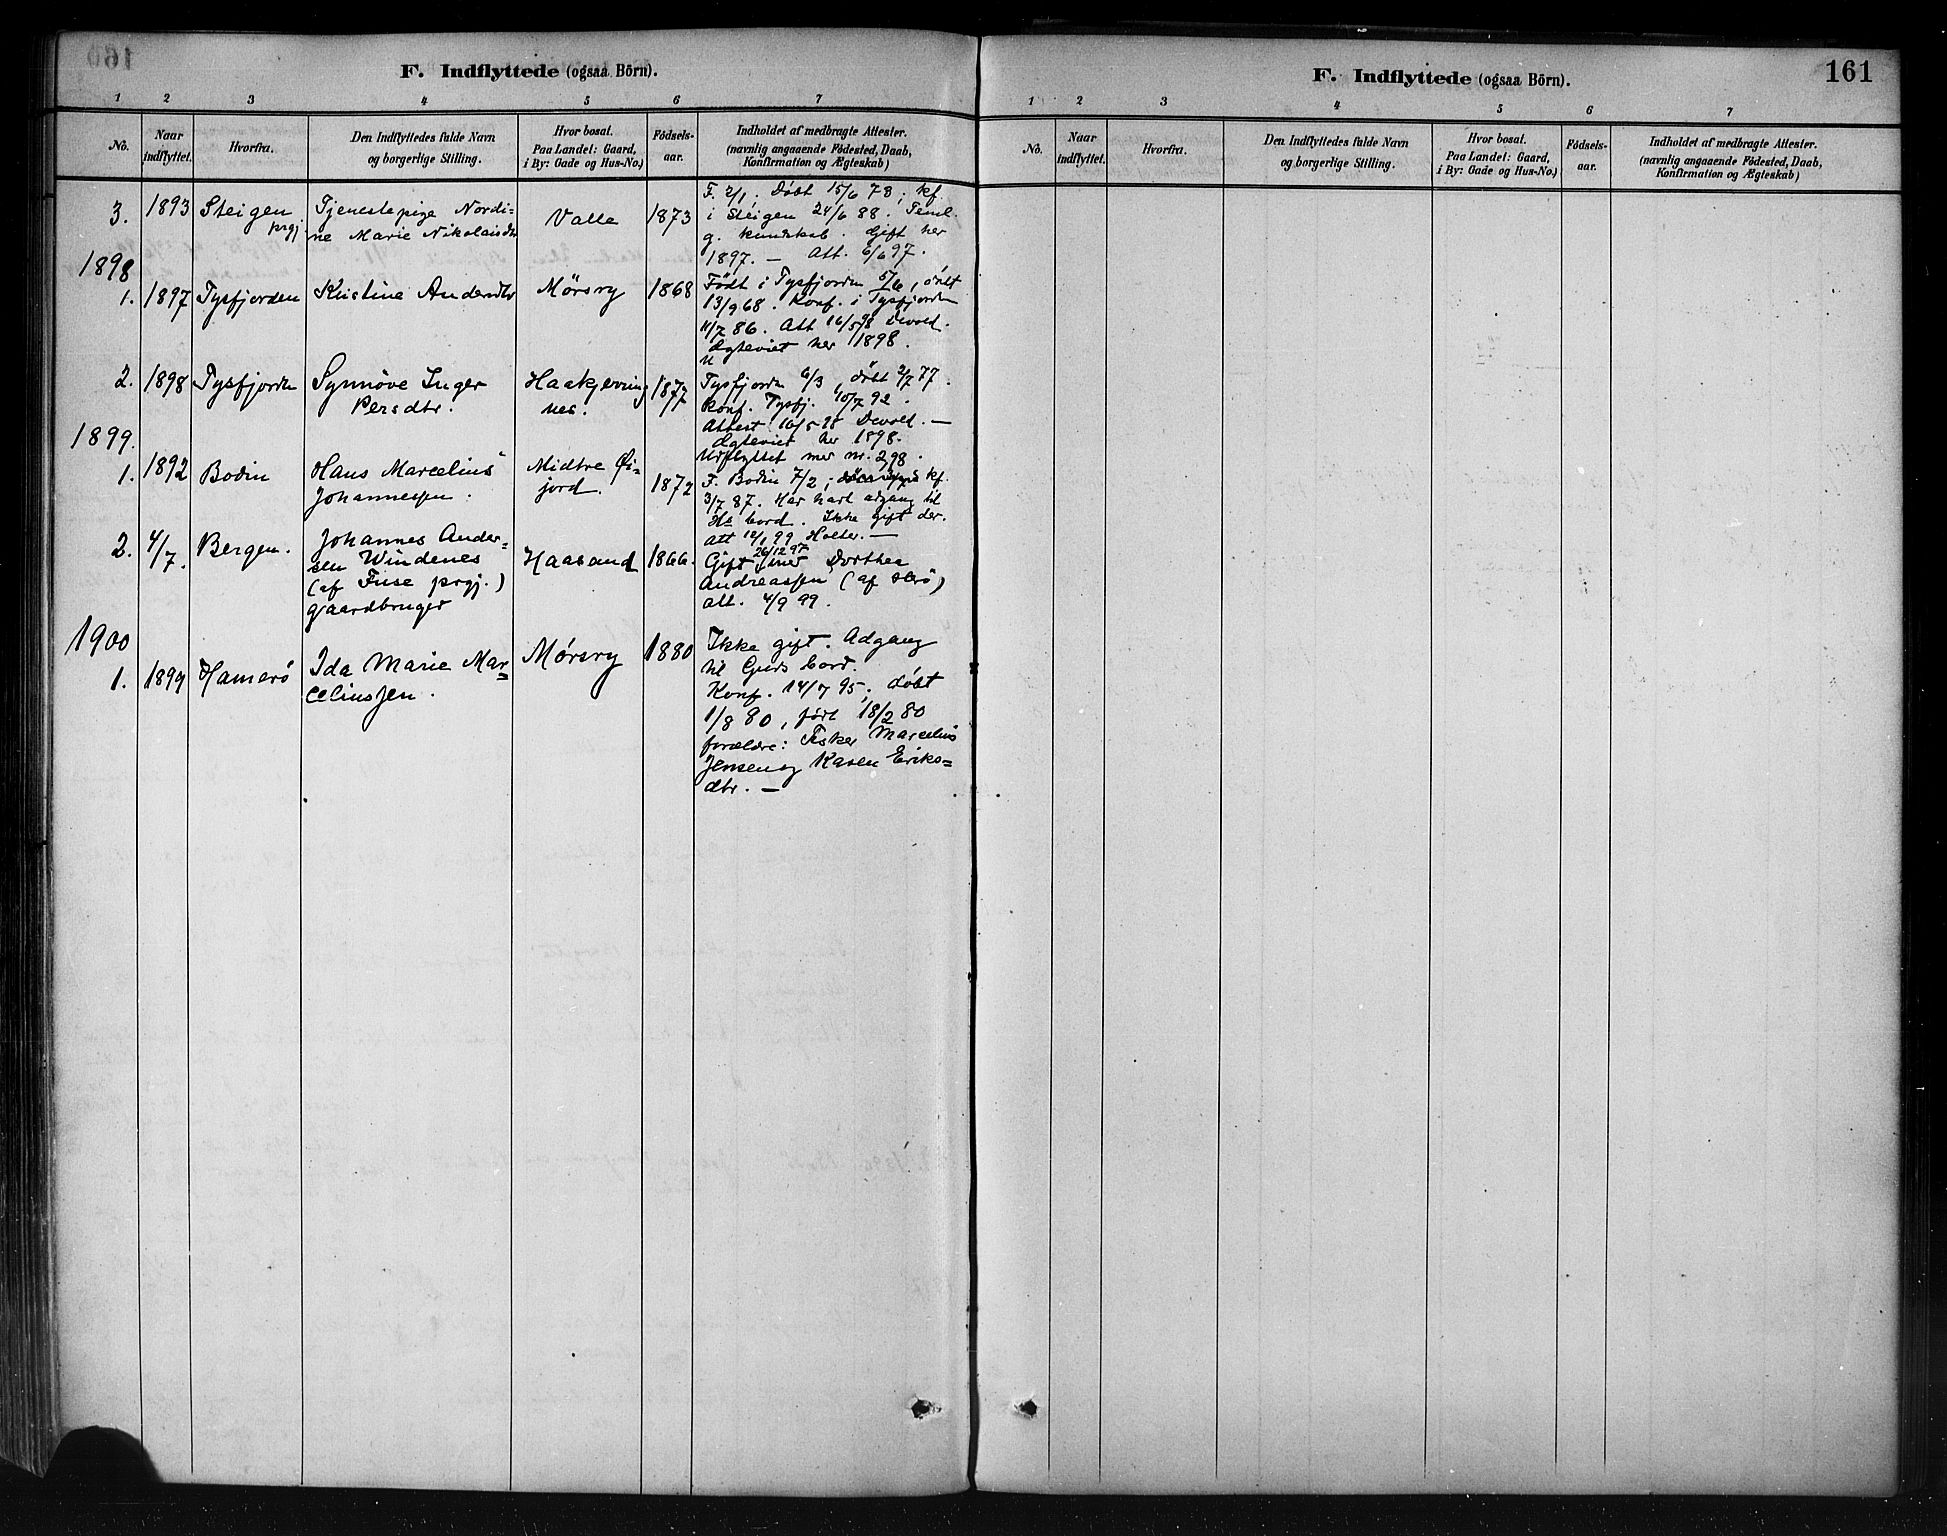 F. Indflyttede (ogsaa Börn).
1 2 3 4 5 6 7
No. Naar indflyttet. Hvorfra. Den Indflyttedes fulde Navn og borgerlige Stilling. Hvor bosat. Paa Landet: Gaard, i By: Gade og Hus-No.) Födsels-aar. Indholdet af medbragte Attester. (navnlig angaaende Födested, Daab, Konfirmation og Ægteskab)
3. 1893 Steigen prgj. Tjenestepige Nordi-
ne Marie Nikolaisdtr Valle 1873 F. 2/1. Døbt 15/6 73; kf.
i Steigen 24/6 88. Temel.
g. kundskab. Gift her
1897. — Att. 6/6 97.
1898
1. 1897 Tysfjorden Kristine Andersdtr Mørsry 1868 Født i Tysfjorden 5/6, døbt
13/9 68. Konf. i Tysfjorden
11/7 86. Att 16/5 98 Devold.
Ægteviet her 1898.
2. 1898 Tysfjorden Synnöve Inger
Persdtr. Haakjerring
nes. 1877 Tysfjorden 6/3, døbt 2/7 77.
Konf. Tysfj. 10/7 92.
Attest 16/5 98 Devold. —
Ægteviet her 1898.
Udflyttet mer nr. 2, 98.
1899.
1. 1892 Bodin Hans Marcelius
Johannessen. Midtre Øi-
jord. 1872 F. Bodin 7/2; kf.
3/7 87. Har havt adgang til
Hs bord. Ikke gift der.
Att 12/1 99 Holter. —
2. 4/7. Bergen. Johannes Ander-
sen Windenes
(af Fuse prgj.)
gaardbruger Haasand 1866. Gift 26/12 95 med Dorthea
Andreassen (af Herö)
att. 4/9 99.
1900
1. 1899 Hamerö Ida Marie Mar=
celiussen. Mørsry 1880 Ikke gift. Adgang
til Guds bord.
Konf. 14/7 95; døbt
1/8 80, født 18/2 80
forældre: Fisker Marcelius
Jensen og Karen Eriks=
dtr. —
F. Indflyttede (ogsaa Börn). 161
1 2 3 4 5 6 7
No. Naar indflyttet. Hvorfra. Den Indflyttedes fulde Navn og borgerlige Stilling. Hvor bosat. Paa Landet: Gaard, i By: Gade og Hus-No.) Födsels-aar. Indholdet af medbragte Attester. (navnlig angaaende Födested, Daab, Konfirmation og Ægteskab)